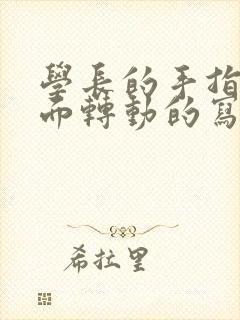 學長的手指
而轉動的寫
希拉里